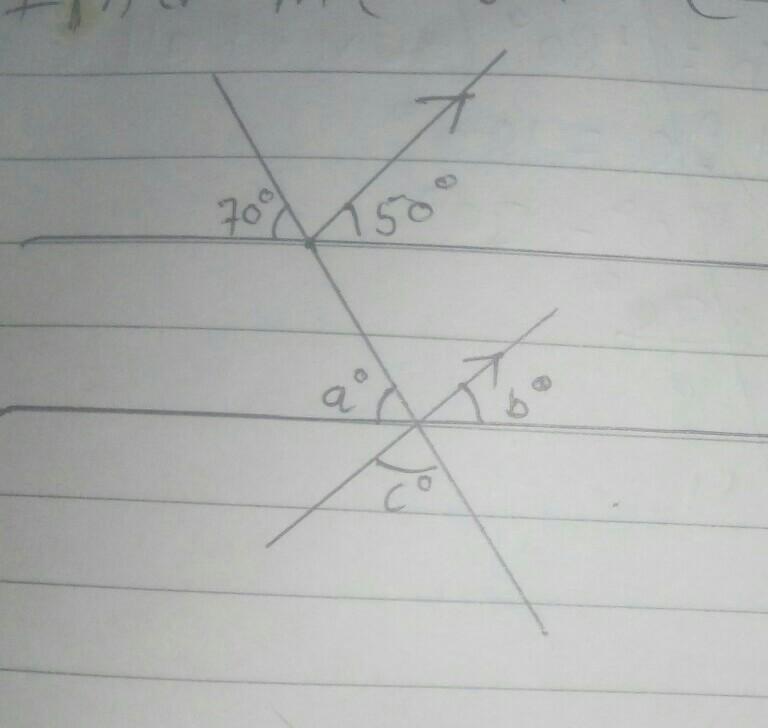 70° 50°
a° b°
c°